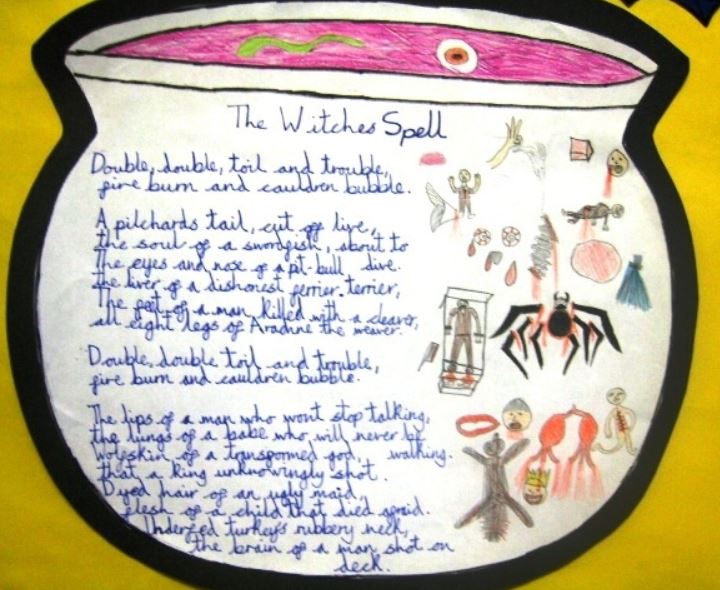 The Witches Spell
Double, double, toil and trouble,
fire burn and cauldren bubble.
A pilchards tail, cut of live,
the soul of a swordfish, about to
The eyes and nose of a pit-bull, dive.
the liver of a dishonest ferrier-terrier,
The feet of a man killed with a cleaver,
all eight legs of Aradine the weaver.
Double, double toil and trouble,
fire burn and cauldren bubble.
The lips of a man who wont stop talking,
the lungs of a babe who will never be
Wolfskin of a transformed god, walking.
that a king unknowingly shot.
Dyed hair of an ugly maid,
flesh of a child that died afraid.
Underfed turkeys rubbery neck,
the brain of a man shot on
deck.